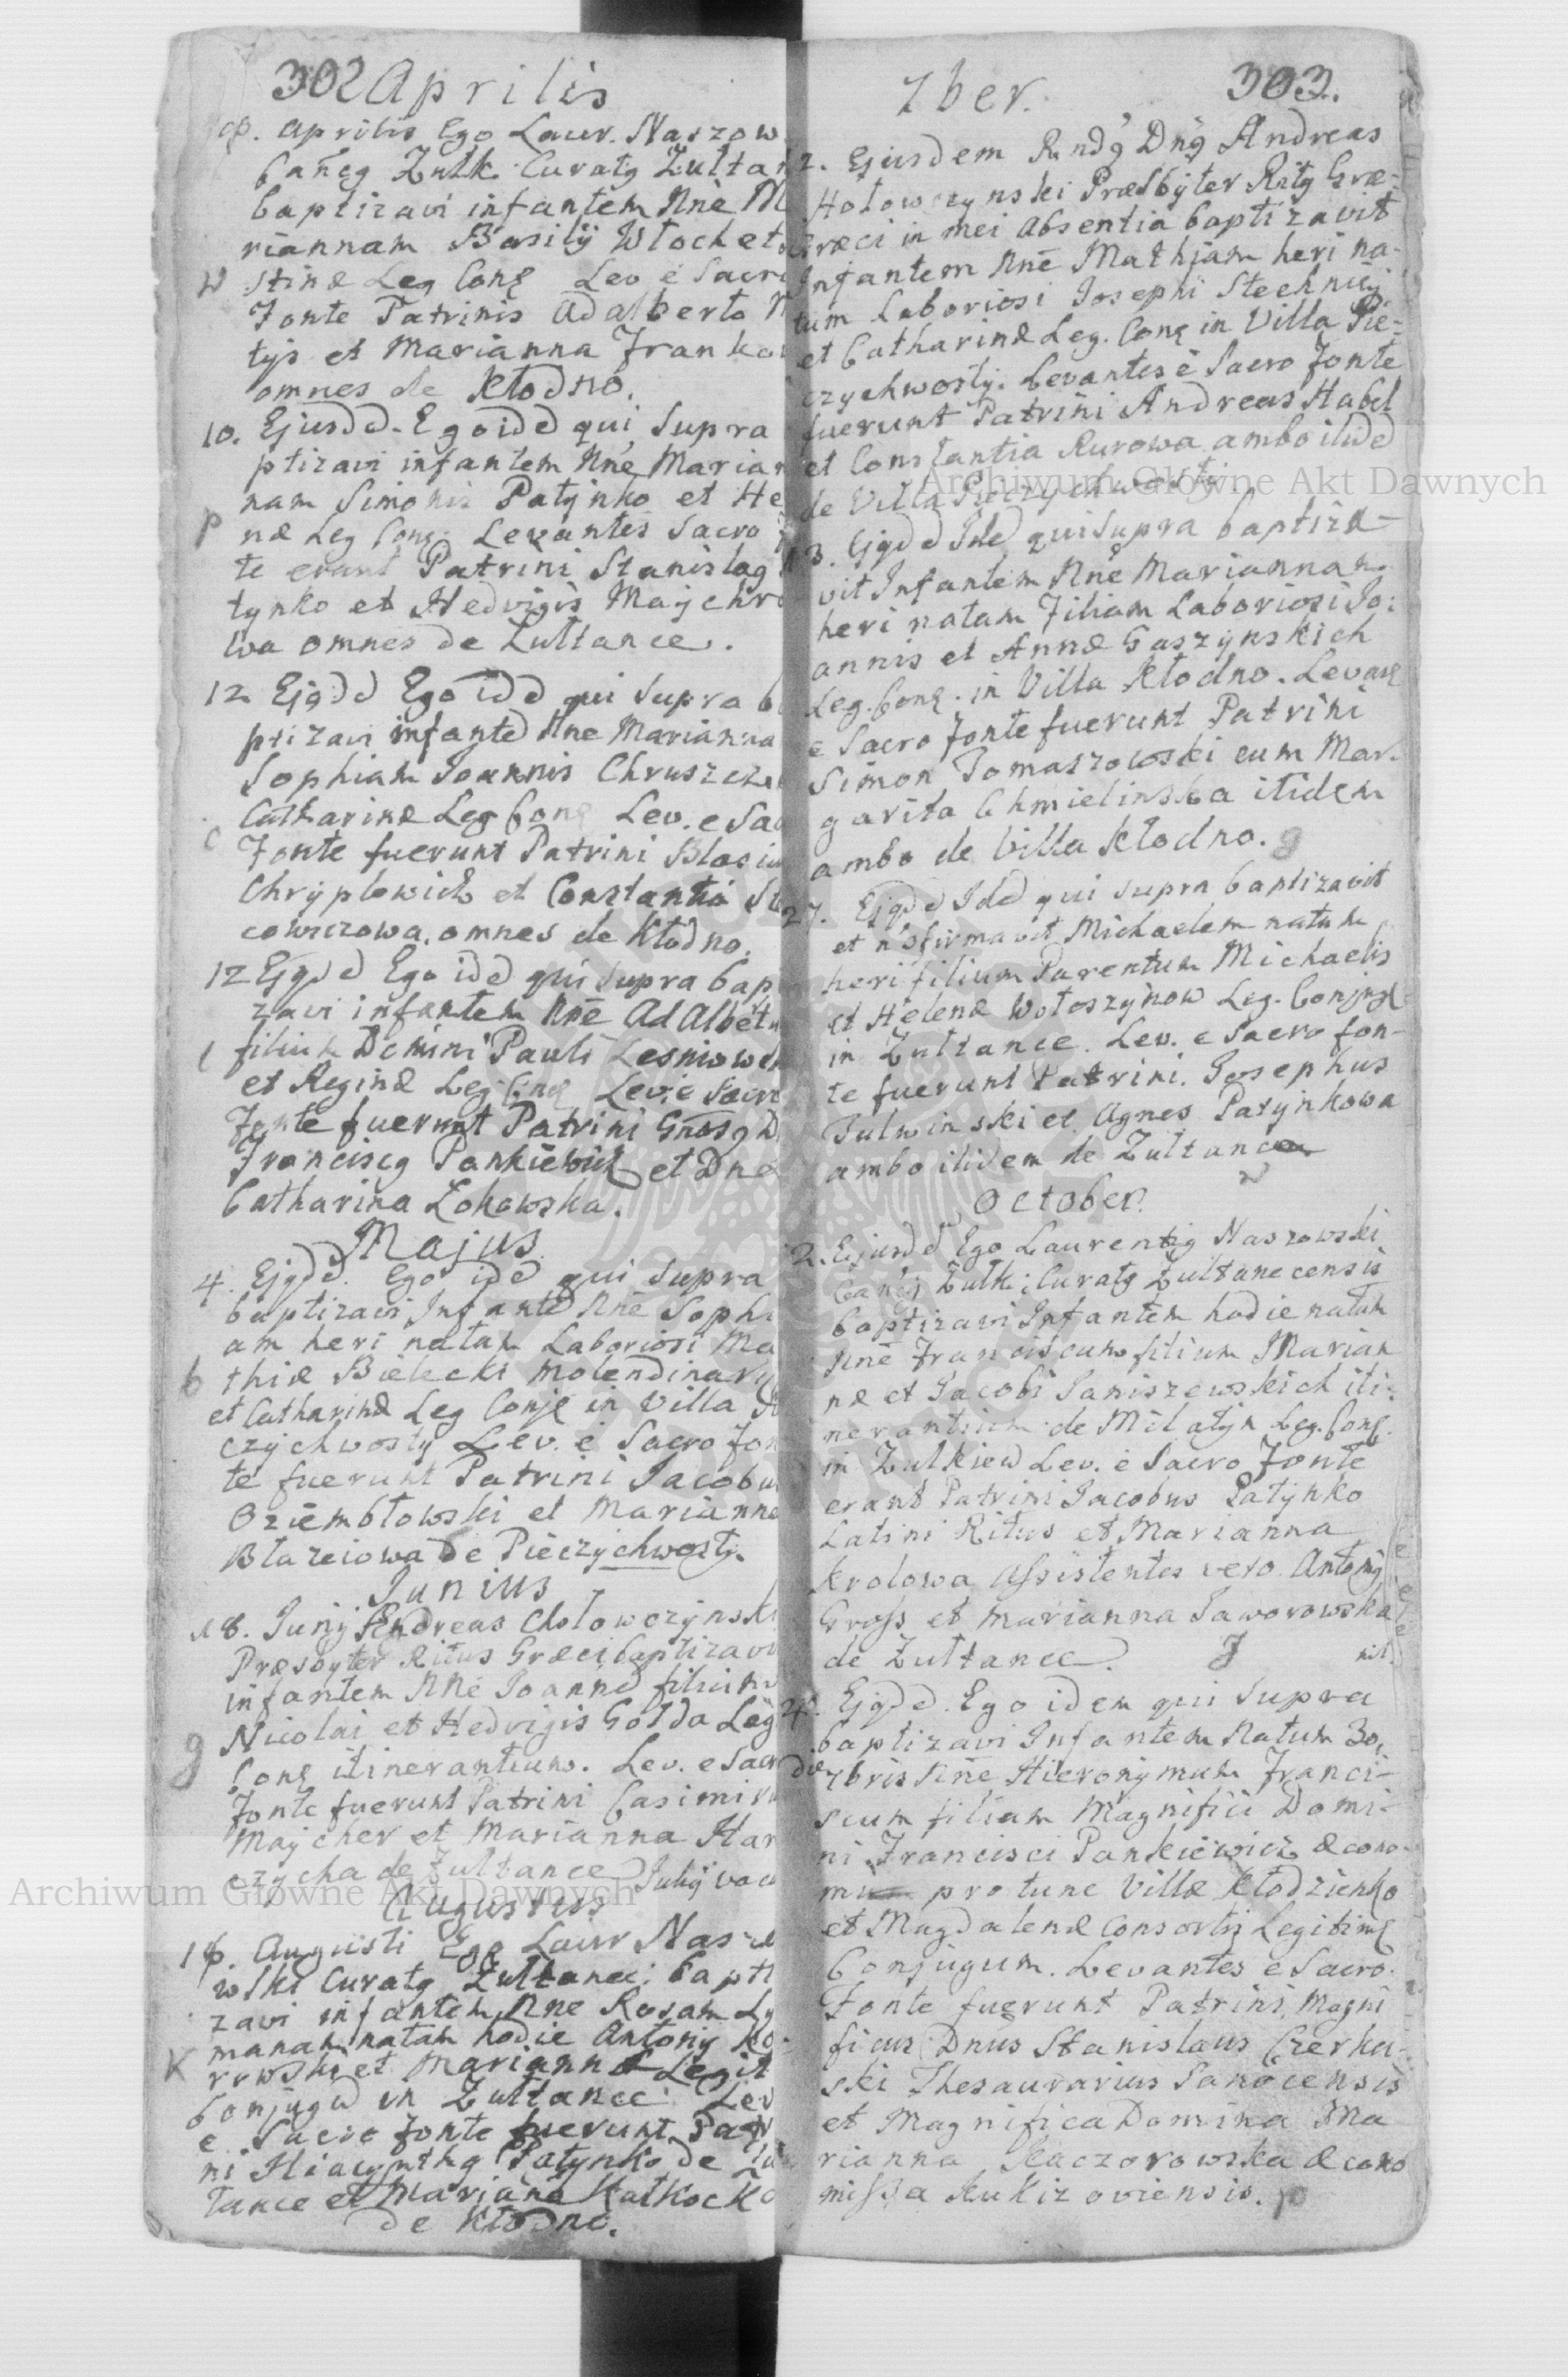 302 Aprilis
Aprilis Ego Laur. Naszow
Zulk. Curatg Zultan
baptizavi infantem Nnē M
riannam Basilij Wloch et
W stinæ Leg Conę Lev é Sacr
Fonte Patrinis Adalberto
tys et Marianna Franko
omnes de Kłodno.
10. Ejusdd. Ego idd qui supra
ptizavi infantem Nnē Marian
nam Simonis Patynko et He
p næ Leg Conę Levantes Sacro
te erant Patrini Stanislag
tynko et Hedvigis Maychro
wa omnes de Zultance.
12 Ejgdd Ego idd qui supra b
ptizavi infantē Nnē Marianna
Sophiam Joannis Chruszcz
Catharinæ Leg Conę Lev. e Sac
c Fonte fuerunt Patrini Blasiu
Chryplowicz et Constantia
cowiczowa. omnes de Kłodno.
12 Ejgdd Ego idd qui supra bap
zavi infantem Nnē AdAlbētu
l filium Domini Pauli Lesniowsk
et Reginæ Leg Conę Lev. e Sacro
Fonte fuerunt Patrini D
Franciscg Pankiewicz et Dna
Catharina Zokowska.
Majus
4. Ejgdd. Ego idd qui supra
baptizavi Infantē Nnē Sophi
am heri natam Laboriosi Ma
b thiæ Bielecki molendinarij
et Catharinæ Leg Conję in Villa
czychwosty Lev. é Sacro Fon
te fuerunt Patrini Jacobu
Oziembłowski et Marianna
Błazeiowa de Pieczychwosty.
Junius
18. Junij Andreas Chołowczynski
Præsbyter Ritus Græci baptizavi
infantem Nnē Joannē filium
Nicolai et Hedvigis Gołda Leg
g Conę itinerantium. Lev. e Sacr
Fonte fuerunt Patrini Casimiru
Maycher et Marianna Har
czycha de Zultance Julij vac
Augustus
Augusti Ego Laur Nas
wski Curatg Zultanec: bapti
zavi infantem Nnē Rosam
manam natam hodie Antonij Ko
K rowski et Mariannæ Legit
Conjugū in Zultance Lev
e Sacro fonte fuerunt Patr
ni Hiacynthg Patynko de Zu
tance et Mariana
de Kłodno.
7ber. 303.
2. Ejusdem Rndg Dng Andreas
Hołowczynski Præsbyter Ritg Græ-
Græci in mei Absentia baptizavit
Infantem Nnē Mathiam heri na-
tum Laboriosi Josephi Stechnicij
et Catharinæ Leg. Conę in Villa Pie-
czychwosty. Levantes é Sacro Fonte
fuerunt Patrini Andreas Habel
et Constantia Rurowa ambo itidd
de Villa Pieczychwosti
3. Ejgdd Idd qui supra baptiza-
vit Infantem Nnē Mariannam
heri natam Filiam Laboriosi Jo:
annis et Annæ Gaszynskich
Leg. Conę. in Villa Kłodno. Levan
e Sacro Fonte fuerunt Patrini
Simon Tomaszowski cum Mar-
garita Chmielinska itidem
ambo de Villa Kłodno. g
27. Ejgdd Idd qui supra baptizavit
et Michaelem natum
heri filium Parentum Michaelis
et Helenæ Wołoszynow Leg. Conjugū
in Zultance. Lev. e Sacro fon-
te fuerunt Patrini. Josephus
Tulwinski et Agnes Patynkowa
ambo itidem de Zultance
W
October.
2. Ejusdd Ego Laurentig Naszowski
Zulk: Curatg Zultanecensis
baptizavi Infantem hodie natum
Nnē Franciscum filium Marian
næ et Jacobi Janiszewskich iti:
nerantium de Milatyn Leg. Conę.
in Zulkiew Lev. é Sacro Fonte
erant Patrini Jacobus Patynko
Latini Ritus et Marianna
Krolowa Assistentes vero Antonij
Gross et Marianna Jaworowska
de Zultance. J
4. Ejgdd. Ego idem qui supra
baptizavi Infantem Natum 30.
die 7bris Nnē Hieronymum Franci-
scum filium Magnifici Domi-
ni Francisci Pankiewicz œcono-
mi pro tunc Villæ Kłodzienko
et Magdalenæ Consortis Legitimę
Conjugum. Levantes e Sacro
Fonte fuerunt Patrini Magni
ficus Dnus Stanislaus
ski Thesaurarius Sanocensis
et Magnifica Domina Ma
rianna Kaczorowska œcono
missa Kukizoviensis. p
Archiwum Główne Akt Dawnych
Archiwum Główne Akt Dawnych